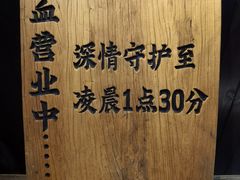 血营业中……
深情守护至
凌晨1点30分